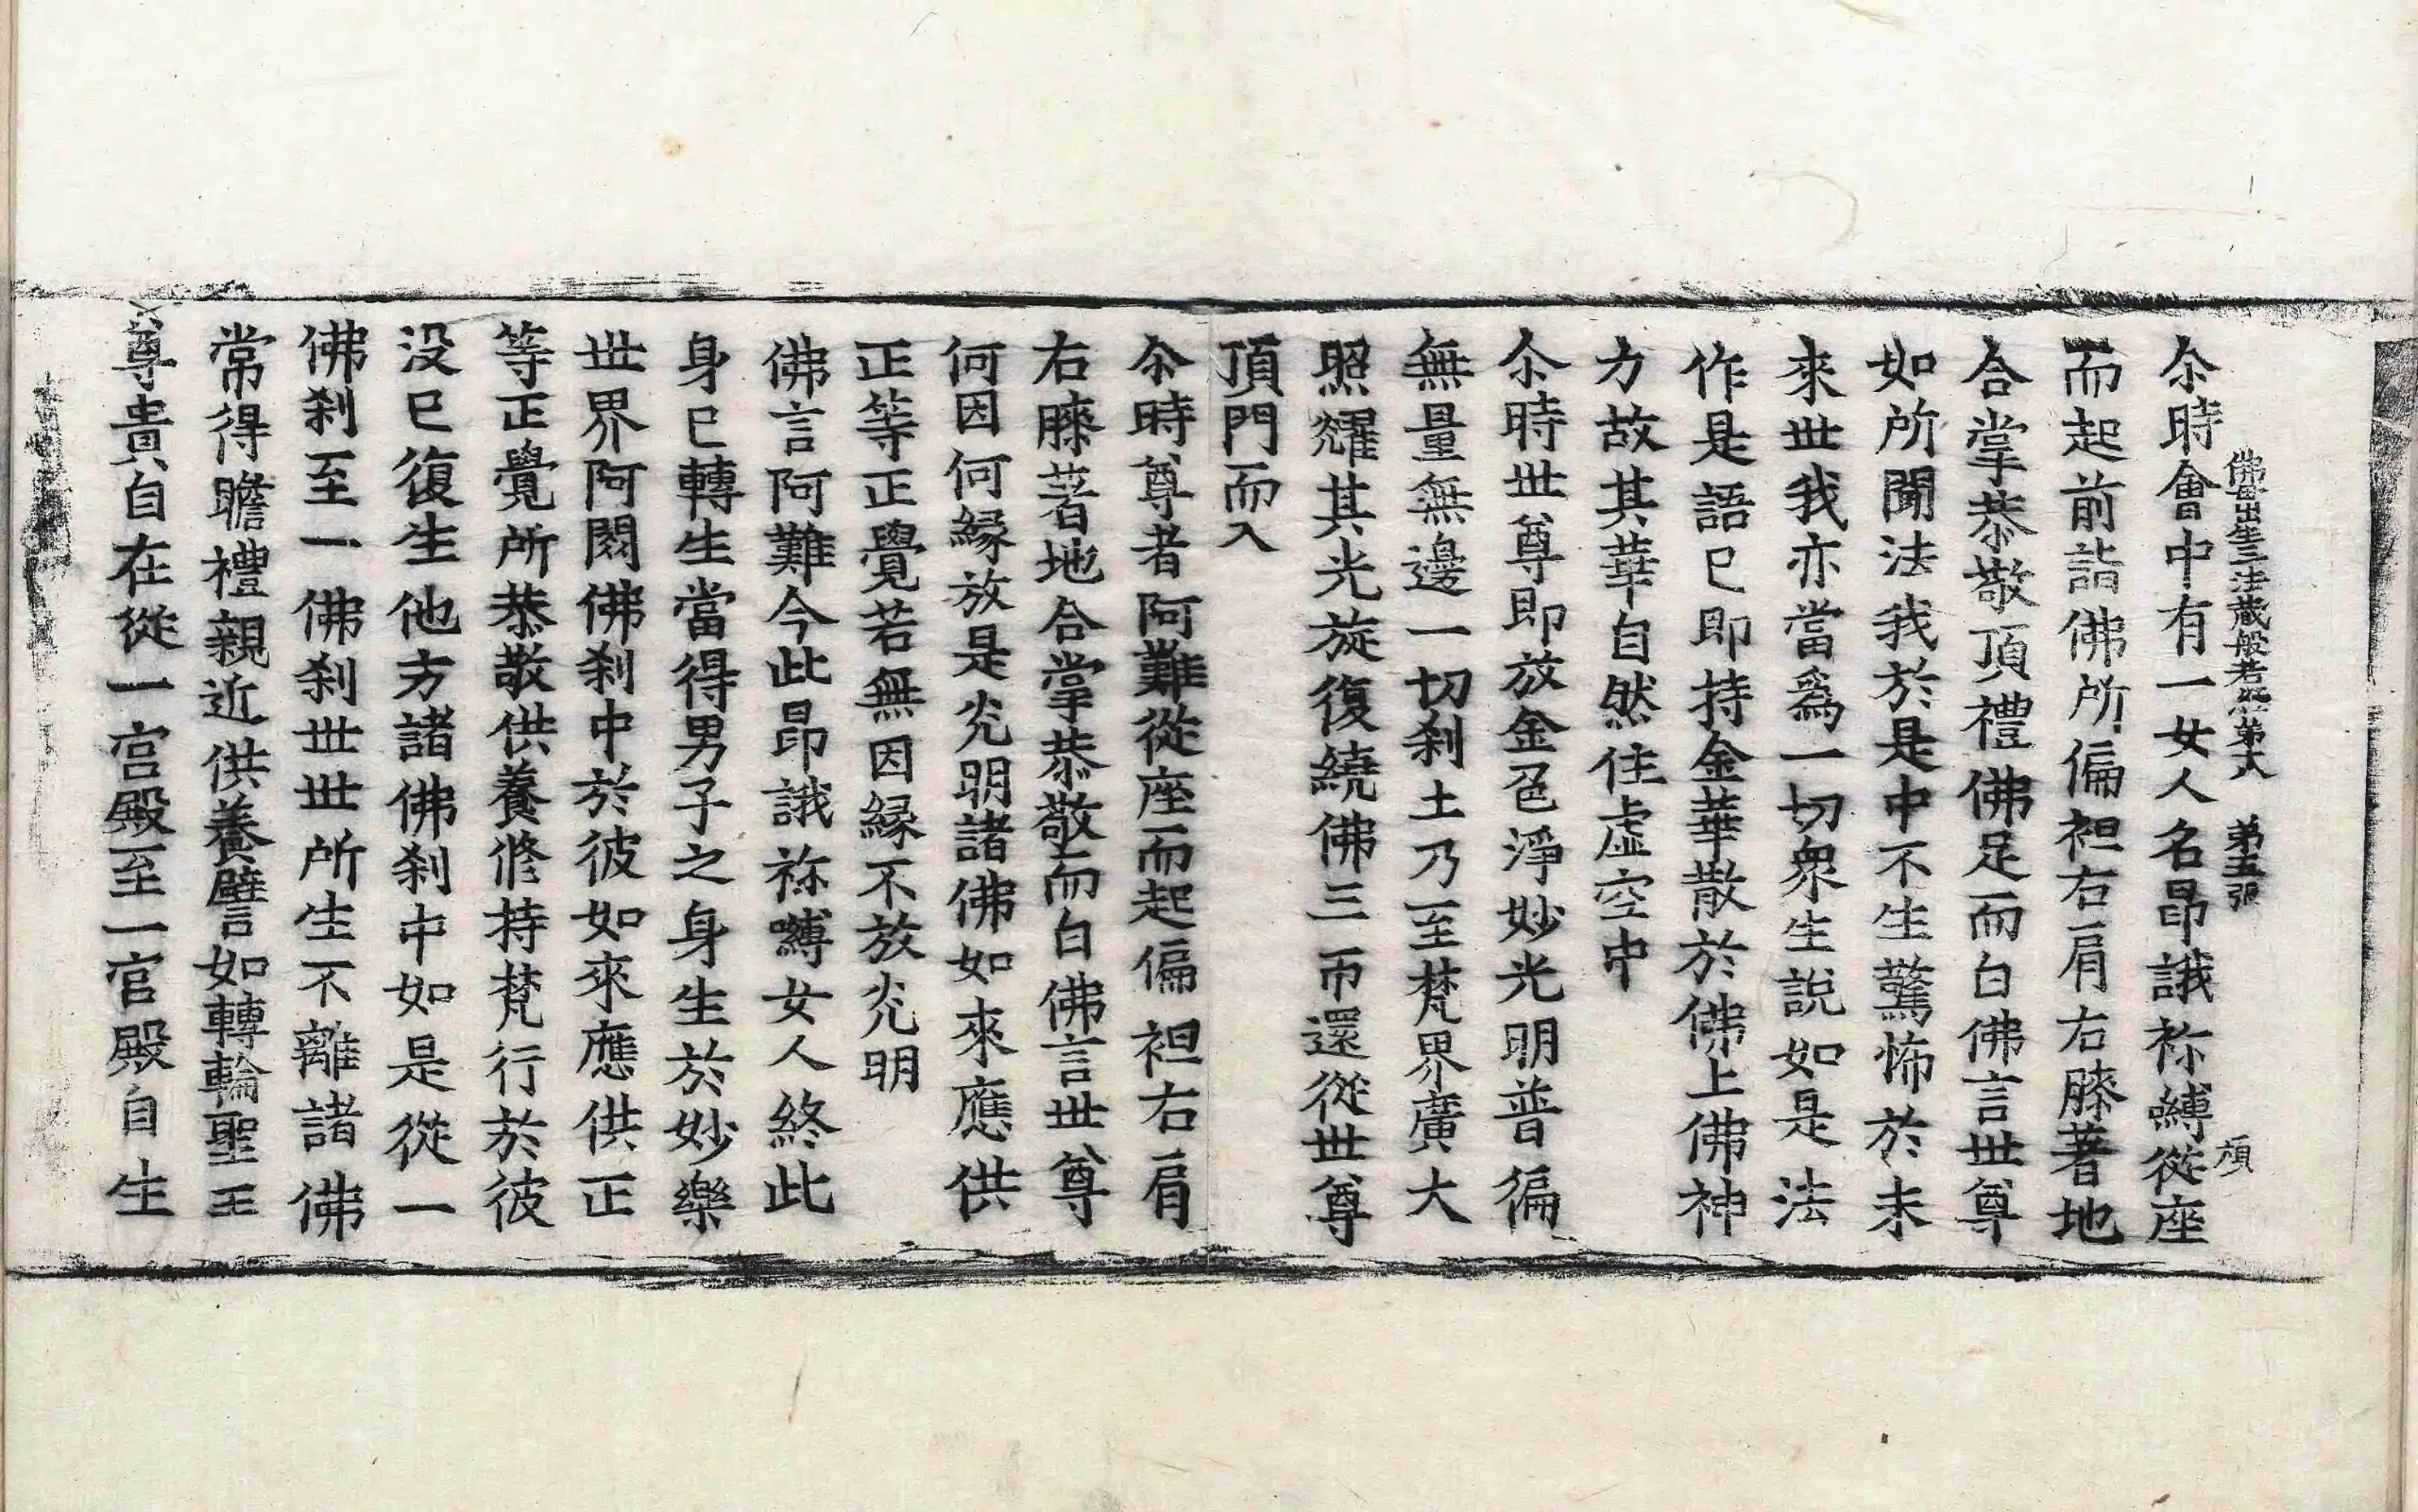 佛母出生三法藏般若經第十八 第五張 傾
尒時會中有一女人名昂誐祢嚩從座
而起前詣佛所偏袒右肩右膝著地
合掌恭敬頂禮佛足而白佛言世尊
如所聞法我於是中不生驚怖於未
來世我亦當爲一切衆生說如是法
作是語已即持金華散於佛上佛神
力故其華自然住虚空中
尒時世尊即放金色淨妙光明普徧
無量無邊一切刹土乃至梵界廣大
照耀其光旋復繞佛三帀還從世尊
頂門而入
尒時尊者阿難從座而起偏袒右肩
右膝著地合掌恭敬而白佛言世尊
何因何縁放是光明諸佛如來應供
正等正覺若無因縁不放光明
佛言阿難今此昂誐祢嚩女人終此
身已轉生當得男子之身生於妙樂
世界阿閦佛刹中於彼如來應供正
等正覺所恭敬供養修持梵行於彼
没已復生他方諸佛刹中如是從一
佛刹至一佛刹世世所生不離諸佛
常得瞻禮親近供養譬如轉輪聖王
尊貴自在從一宫殿至一宫殿自生